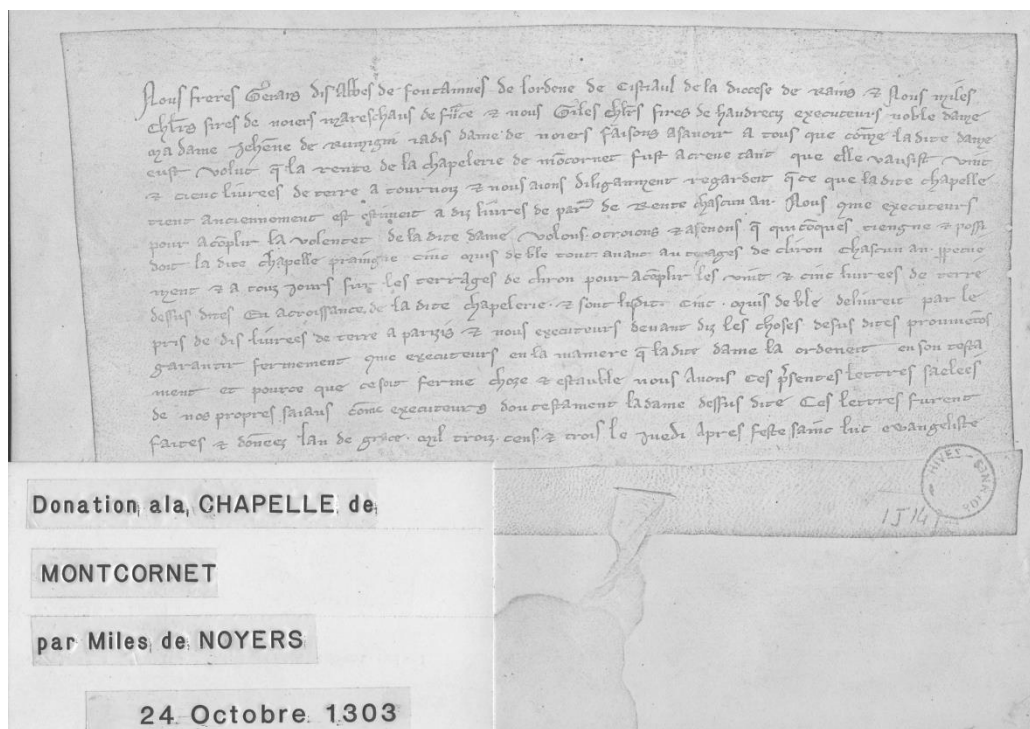 Nous freres Gerars dis Abbes de fontainnes de lordene de Cistiaul de la diocese de Rains & Nous miles
chlrs sires de noiers mareschaus de frce & nous Giles chlrs sires de haudrecy executeurs noble dame
ma dame Jehenne de Rumigni iadis dame de noiers faisons asavoir a tous que come la dite dame
eust volut q la rente de la chapelerie de mocornet fust acreue tant que elle vausist vint
& cienc livrees de terre a tournois & nous aions diliganment regardeit q ce que la dite chapelle
tient anciennoment est estimeit a diz livres de par de Rente chascun an. Nous cme executeurs
pour acoplir la volentet de la dite dame volons otroions & asenons q quicoques tiengne & possi
doit la dite chapelle praingne cinc muis de ble tout avant au terages de cliron chascun an ppetue
ment & a touz jours sur les terrages de cliron pour acoplir les vint & cinc livrees de terre
dessus dites En acroissance de la dite chapelerie. & sont lidit. Cinc. muis de ble delivreit par le
pris de dis livrees de terre a parizis & nous executeurs devant diz les choses desus dites prometos
garantir fermement cme executeurs en la maniere q la dite dame la ordeneit en son testa
ment et pource que ce soit ferme choze & estauble nous Avons ces psentes lettres saelées
de nos propres saiaus come executeurs dou testament la dame dessus dite Ces lettres furent
faites & donees lan de grace. mil trois cens & trois le juedi Apres feste saint luc evangeliste
HIVES - ARDENNES
1J14
Donation ala CHAPELLE de
MONTCORNET
par Miles de NOYERS
24 Octobre 1303